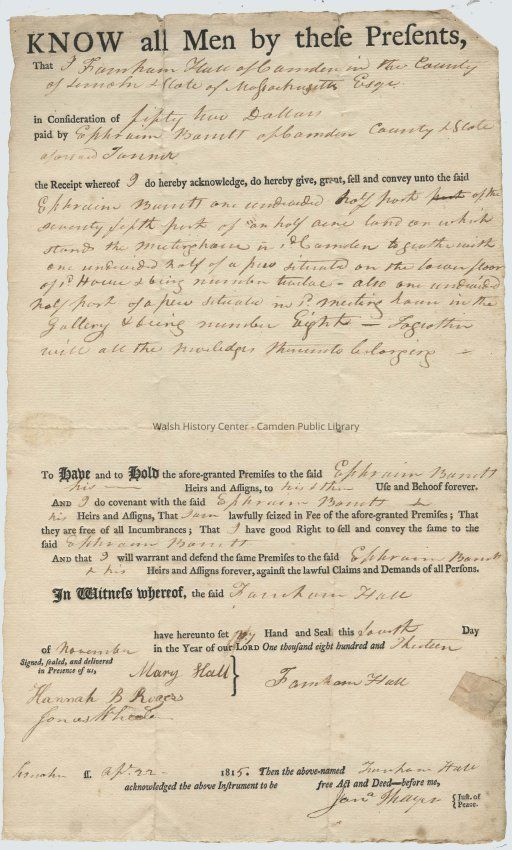 KNOW all Men by theſe Preſents,
That I Farnham Hall of Camden in the County
of Lincoln & State of Massachusetts Esqr.
in Conſideration of fifty two Dollars
paid by Ephraim Barrett of Camden County & State
aforesaid Tanner
the Receipt whereof I do hereby acknowledge, do hereby give, grant, ſell and convey unto the ſaid
Ephraim Barrett one undivided half part part of the
seventy fifth part of an half acre land on which
stands the meetinghouse in sd Camden together with
one undivided half of a pew situated on the lower floor
of sd House & being number twelve - also one undivided
half part of a pew situate in sd meeting house in the
Gallery & being number Eight — Together
with all the priviledges thereunto belonging -
Walsh History Center - Camden Public Library
To Have and to Hold the afore-granted Premiſes to the ſaid Ephraim Barrett
his Heirs and Aſſigns, to his & their Uſe and Behoof forever.
AND I do covenant with the ſaid Ephraim Barrett &
his Heirs and Aſſigns, That I am lawfully ſeized in Fee of the afore-granted Premiſes; That
they are free of all Incumbrances; That I have good Right to ſell and convey the ſame to the
ſaid Ephraim Barrett
AND that I will warrant and defend the ſame Premiſes to the ſaid Ephraim Barrett
& his Heirs and Aſſigns forever, againſt the lawful Claims and Demands of all Perſons.
In Witneſs whereof, the ſaid Farnham Hall
have hereunto ſet my Hand and Seal this fourth Day
of November in the Year of our LORD One thouſand eight hundred and Thirteen
Signed, ſealed, and delivered
in Preſence of us,
Mary Hall
Farnham Hall
Hannah B
Jonas Wheeler
Lincoln ſſ. Apl. 22 - 1815. Then the above-named Farnham Hall
acknowledged the above Inſtrument to be free Act and Deed—before me,
Jona Thayer Juſt. of
Peace.